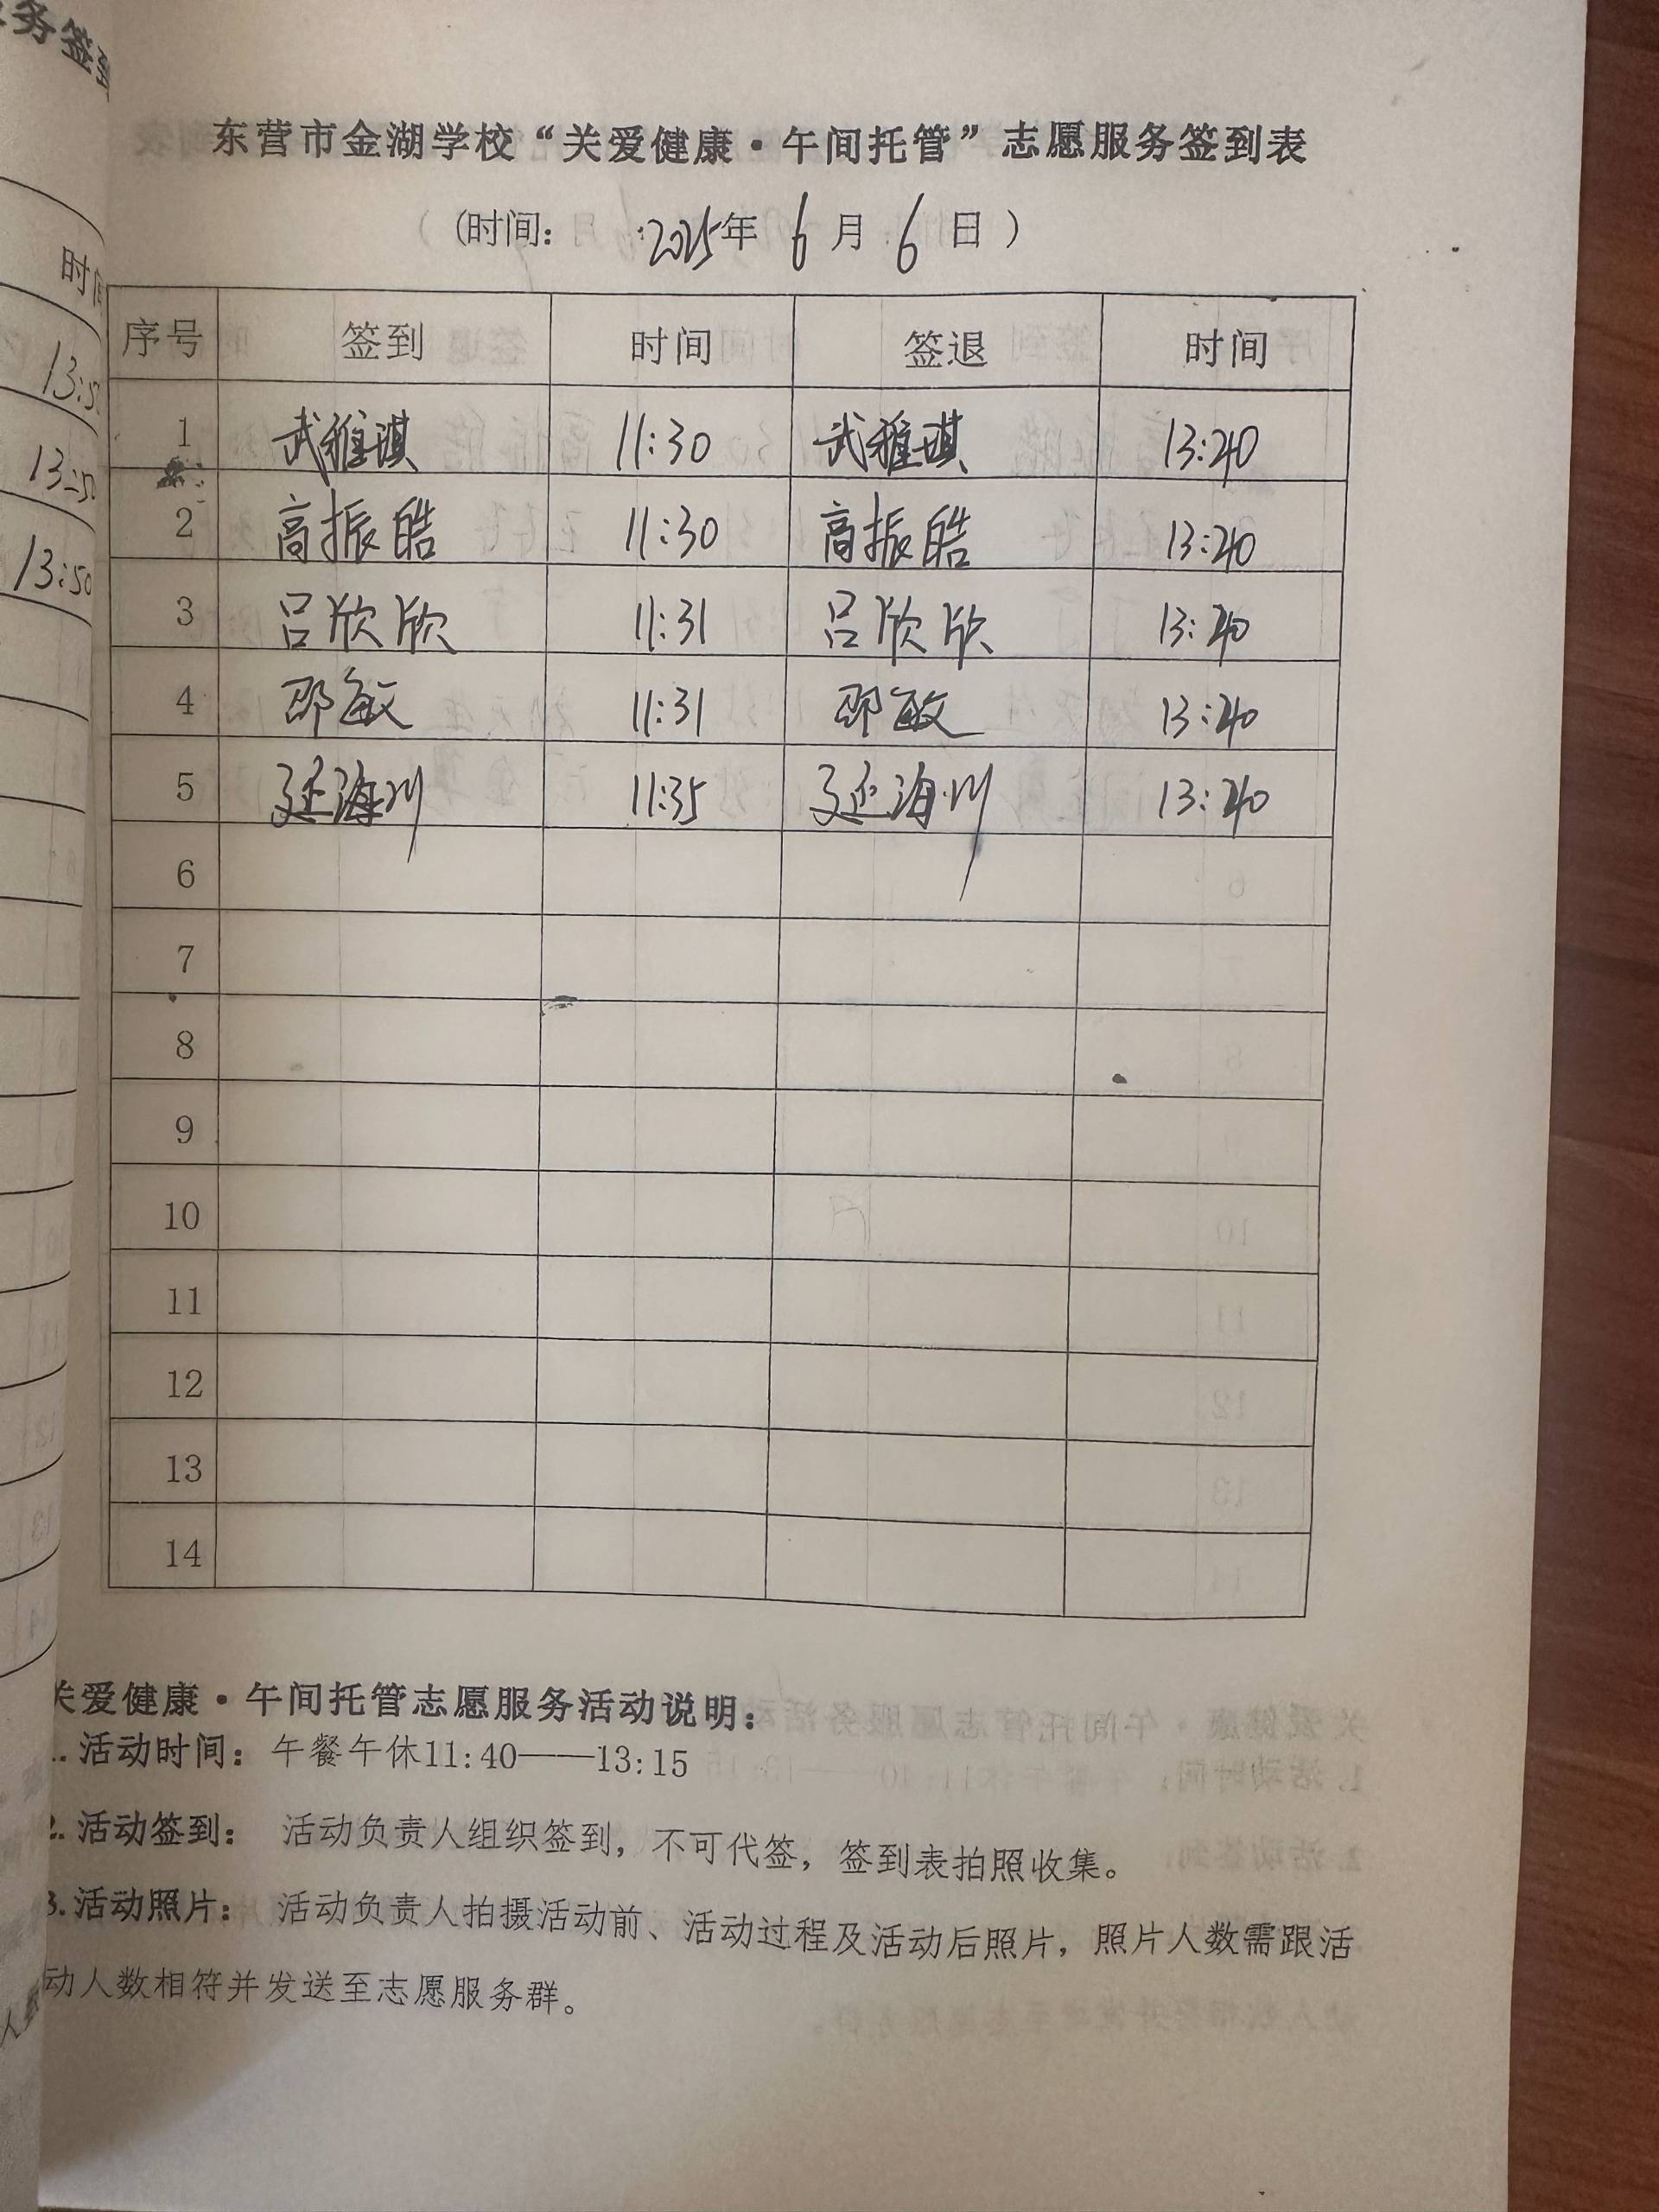 务签到
时间
13:5
13:5
13:50
东营市金湖学校“关爱健康·午间托管”志愿服务签到表
(时间: 2025年 6 月 6 日 )
序号 签到 时间 签退 时间
1 武雅琪 11:30 武雅琪 13:40
2 高振皓 11:30 高振皓 13:40
3 吕欣欣 11:31 吕欣欣 13:40
4 邵敏 11:31 邵敏 13:40
5 延海川 11:35 延海川 13:40
6
7
8
9
10
11
12
13
14
关爱健康·午间托管志愿服务活动说明:
1. 活动时间: 午餐午休11:40——13:15
2. 活动签到: 活动负责人组织签到，不可代签，签到表拍照收集。
3.活动照片: 活动负责人拍摄活动前、活动过程及活动后照片，照片人数需跟活
动人数相符并发送至志愿服务群。